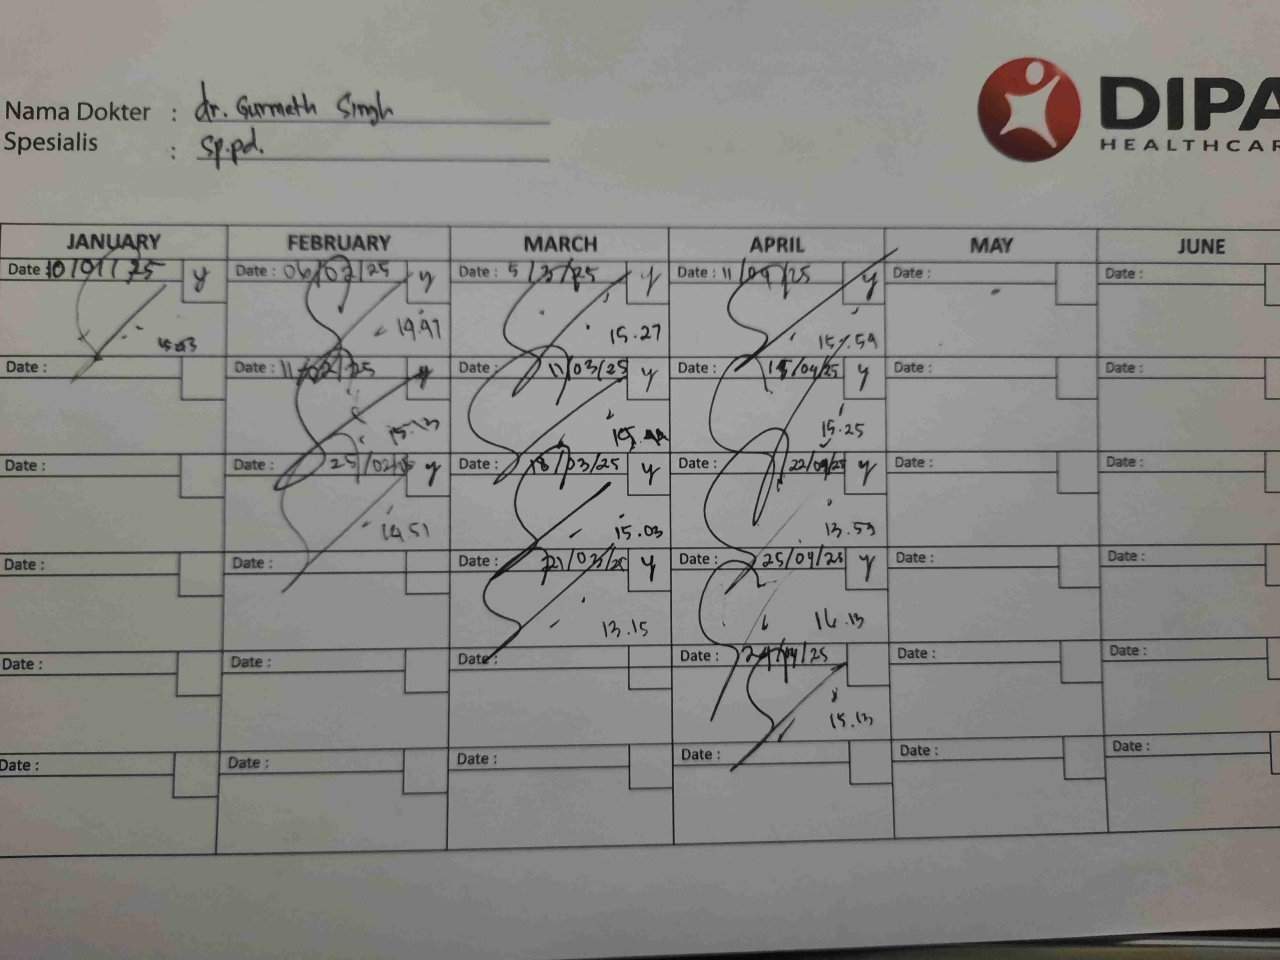 Nama Dokter : dr. Gurmeth Singh
Spesialis : Sp.pd.
DIPA
HEALTHCAR
JANUARY FEBRUARY MARCH APRIL MAY JUNE
Date : 10/01/25 y Date : 06/02/25 y Date : 5/3/25 y Date : 11/04/25 y Date : Date :
14.47 15.27 15.59
Date : Date : 11/02/25 y Date : 11/03/25 y Date : 15/04/25 y Date : Date :
15.13 15.44 15.25
Date : Date : 25/02/25 y Date : 18/03/25 y Date : 22/04/25 y Date : Date :
14.51 15.03 13.53
Date : Date : Date : 21/03/25 y Date : 25/04/25 y Date : Date :
13.15 16.13
Date : Date : Date : Date : 29/04/25 Date : Date :
15.13
Date : Date : Date : Date : Date : Date :